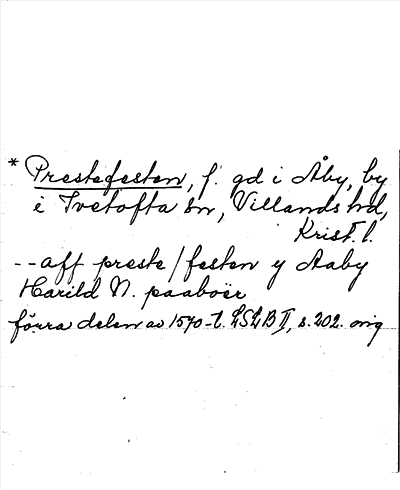 * Prestefesten, f. gd i Åby, by
i Ivetofta sn, Villands hd,
Krist. l.
--aff preste/festen y Aaby
Harild N. paaboer
förra delen av 1570-t. LSLB II, s. 202. orig